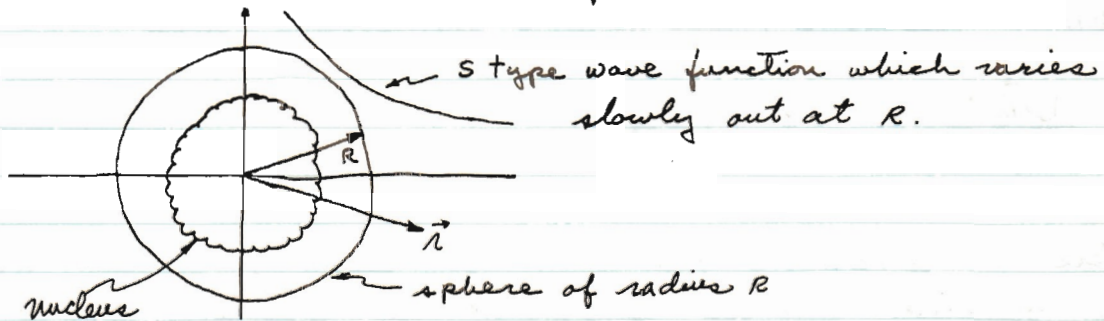 s type wave function which varies
slowly out at R.
R
r
nucleus
sphere of radius R